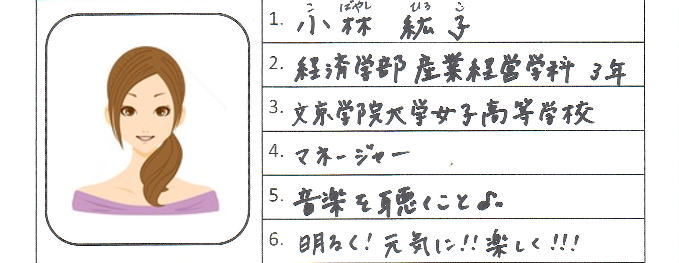 こ ばやし ひろ こ
1. 小林 紘子
2. 経済学部 産業経営学科 3年
3. 文京学院大学女子高等学校
4. マネージャー
5. 音楽を聴くこと♪。
6. 明るく!元気に!!楽しく!!!